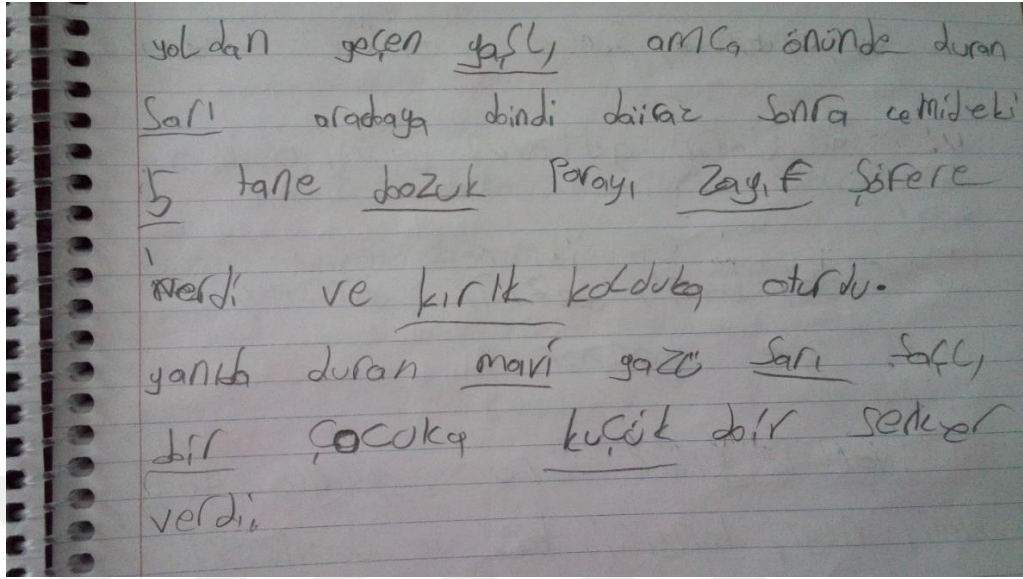 yoldan geçen yaşlı amca önünde duran
Sarı aradaya bindi biraz Sonra cemideki
5 tane bozuk Parayı Zayıf Şöfere
verdi ve kırık kolduka oturdu.
yanıda duran mavi gazö Sarı Saçlı
bir Çocuka kuçük bir Seker
verdi.